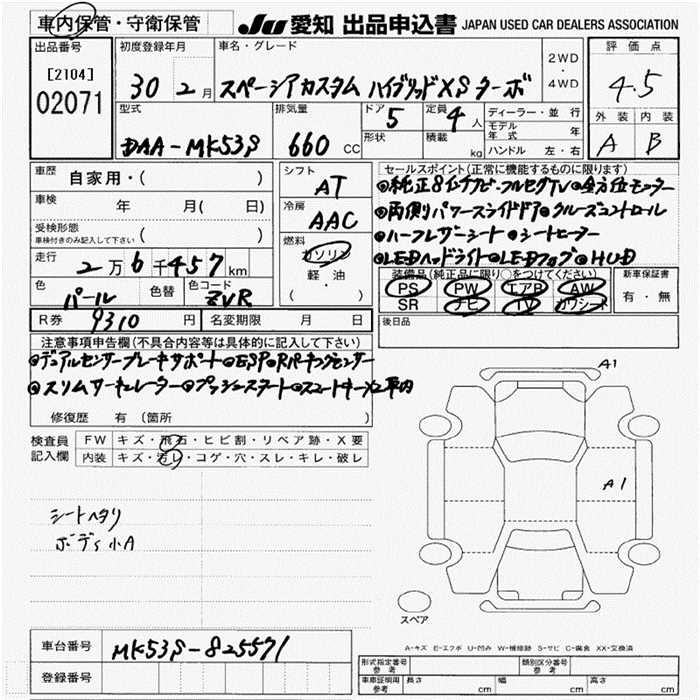 車内保管・守衛保管
JU 愛知 出品申込書 JAPAN USED CAR DEALERS ASSOCIATION
出品番号
[2104]
02071
初度登録年月
30 2月
車名・グレード
スペーシアカスタム ハイブリッドXSターボ
2WD
・
4WD
評価点
4.5
外装 内装
A B
型式
DAA-MK53S
排気量
660 CC
ドア 5
形状
定員 4人
積載 kg
ディーラー・並行
モデル年式 年
ハンドル 左・右
車歴 自家用・( )
車検 年 月( 日)
受検形態
車検付きのみ記入して下さい ( )
走行 2万6千457km
色 パール 色替 色コード ZVR
シフト AT
冷房 AAC
燃料 ガソリン
軽油
( )
セールスポイント(正常に機能するものに限ります)
◎純正8インチナビ-フルセグTV◎全方位モニター
◎両側パワースライドドア◎クルーズコントロール
◎ハーフレザーシート◎シートヒーター
◎LEDヘッドライト◎LEDフォグ◎HUD
装備品(純正品に限り○をつけてください)
PS PW エアB AW
SR ナビ TV カワシート
新車保証書
有・無
R券 9310円 名変期限 月 日
後日品
注意事項申告欄(不具合内容等は具体的に記入して下さい)
◎デュアルセンサーブレーキサポート◎ESP◎Rパーキングセンサー
◎スリムサーキュレーター◎プッシュスタート◎スマートキー×2車内
修復歴 有(箇所 )
検査員記入欄
FW キズ・飛石・ヒビ割・リペア跡・X要
内装 キズ・汚レ・コゲ・穴・スレ・キレ・破レ
シートヘタリ
ボディ小A
A1
A1
スペア
A-キズ E-エクボ U-凹み W-補修跡 S-サビ C-腐食 XX-交換済
車台番号 MK53S-825571
登録番号
型式指定番号 参考
類別区分番号 参考
車庫証明用 参考 長さ cm 幅 cm 高さ cm